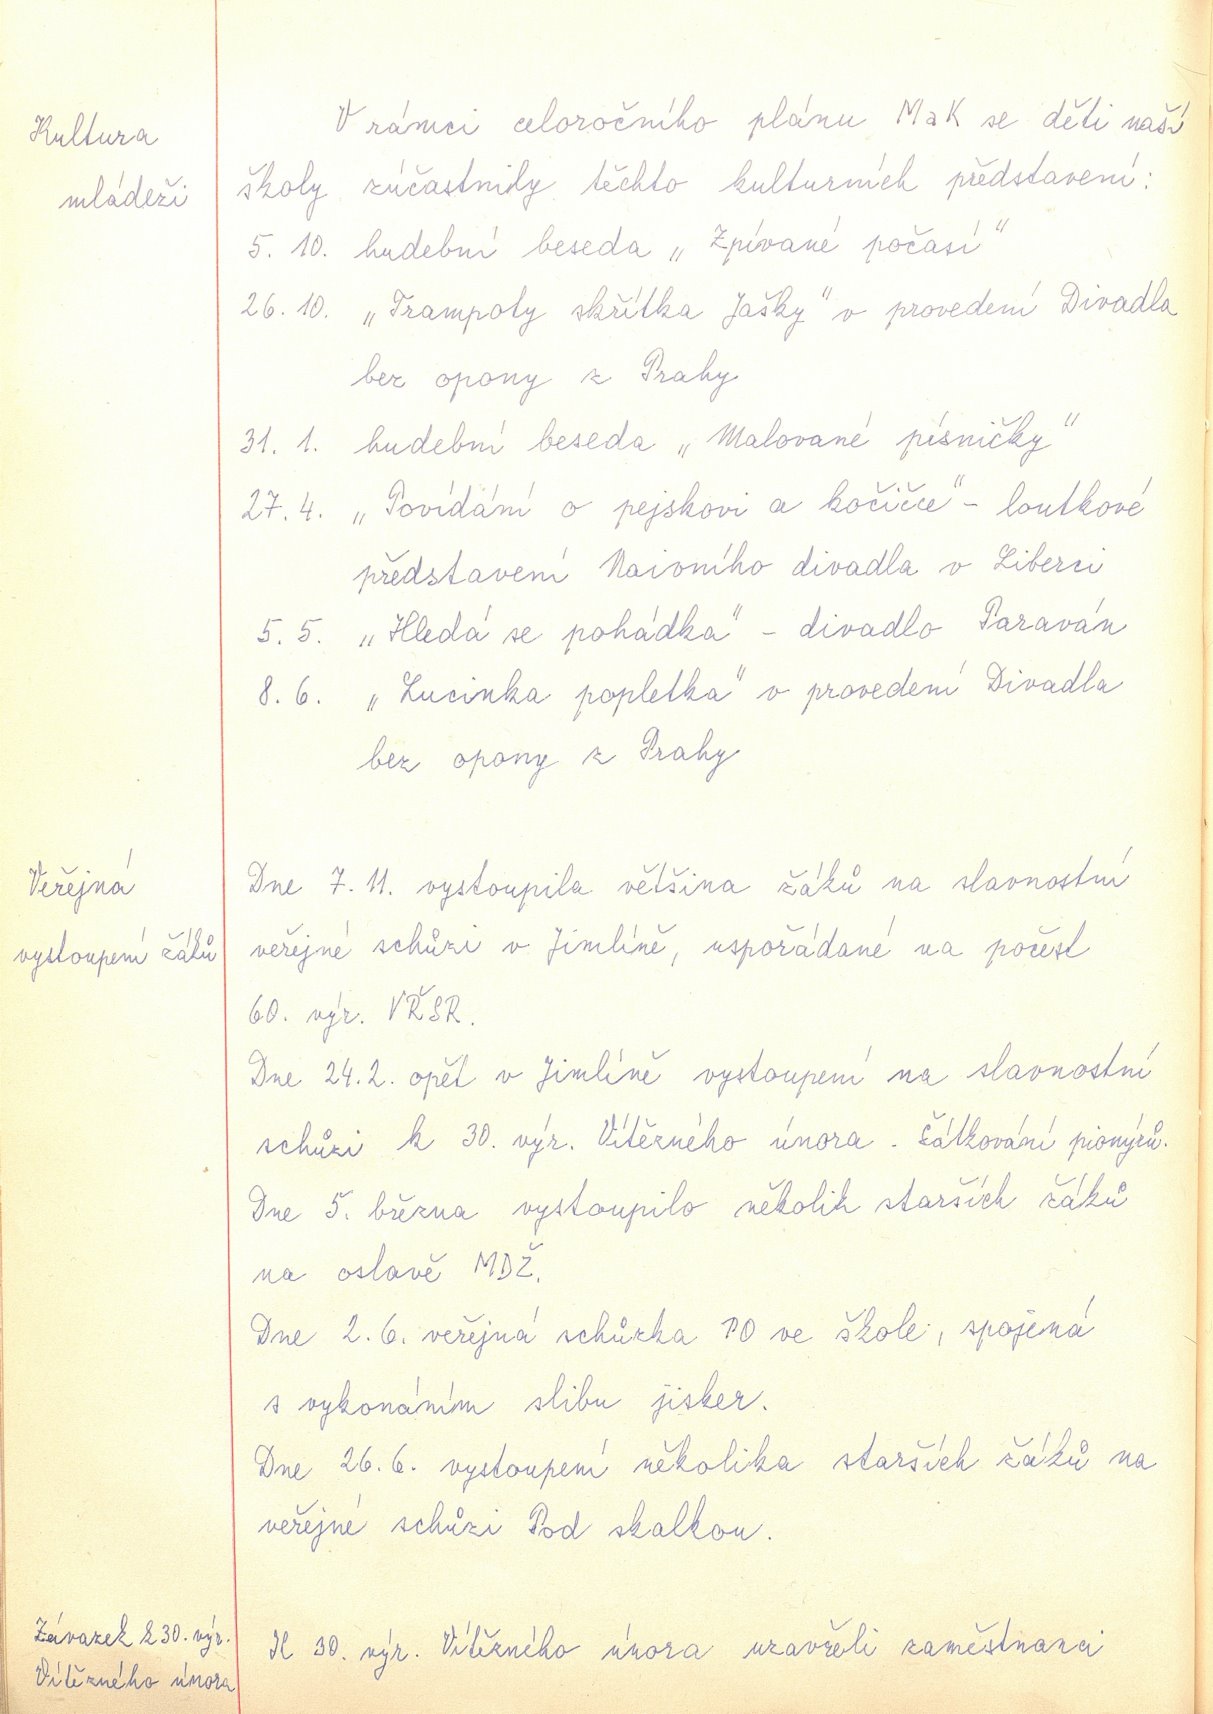 Kultura
mládeži
V rámci celoročního plánu MaK se děti naší
školy zúčastnily těchto kulturních představení:
5. 10. hudební beseda „Zpívané počasí"
26. 10. „Trampoty skřítka Jašky" v provedení Divadla
bez opony z Prahy
31. 1. hudební beseda „Malované písničky"
27. 4. „Povídání o pejskovi a kočičce" - loutkové
představení Naivního divadla v Liberci
5. 5. „Hledá se pohádka" - divadlo Paraván
8. 6. „Lucinka popletka" v provedení Divadla
bez opony z Prahy
Veřejná
vystoupení žáků
Dne 7. 11. vystoupila většina žáků na slavnostní
veřejné schůzi v Jimlíně, uspořádané na počest
60. výr. VŘSR.
Dne 24. 2. opět v Jimlíně vystoupení na slavnostní
schůzi k 30. výr. Vítězného února - šátkování pionýrů.
Dne 5. března vystoupilo několik starších žáků
na oslavě MDŽ.
Dne 2. 6. veřejná schůzka PO ve škole, spojená
s vykonáním slibu jisker.
Dne 26. 6. vystoupení několika starších žáků na
veřejné schůzi Pod skalkou.
Závazek k 30. výr.
Vítězného února
K 30. výr. Vítězného února uzavřeli zaměstnanci